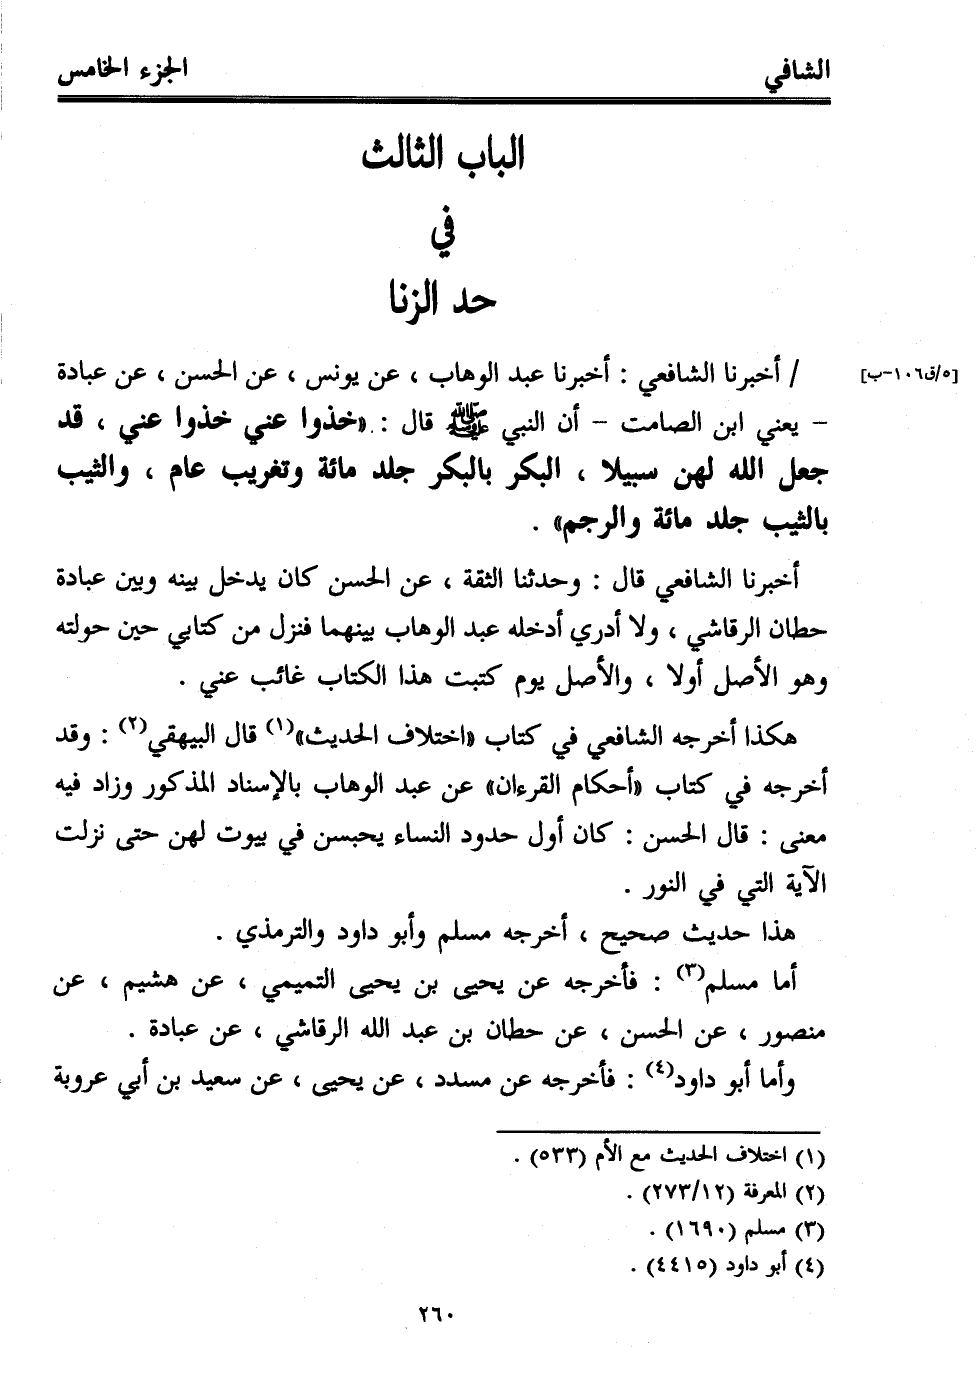 الشافي الجزء الخامس
الباب الثالث
في
حد الزنا
[٥/ق١٠٦-ب] / أخبرنا الشافعي : أخبرنا عبد الوهاب ، عن يونس ، عن الحسن ، عن عبادة
- يعني ابن الصامت - أن النبي ﷺ قال : «خذوا عني خذوا عني ، قد
جعل الله لهن سبيلا ، البكر بالبكر جلد مائة وتغريب عام ، والثيب
بالثيب جلد مائة والرجم» .
أخبرنا الشافعي قال : وحدثنا الثقة ، عن الحسن كان يدخل بينه وبين عبادة
حطان الرقاشي ، ولا أدري أدخله عبد الوهاب بينهما فنزل من كتابي حين حولته
وهو الأصل أولا ، والأصل يوم كتبت هذا الكتاب غائب عني .
هكذا أخرجه الشافعي في كتاب «اختلاف الحديث»(١) قال البيهقي(٢) : وقد
أخرجه في كتاب «أحكام القرءان» عن عبد الوهاب بالإسناد المذكور وزاد فيه
معنى : قال الحسن : كان أول حدود النساء يحبسن في بيوت لهن حتى نزلت
الآية التي في النور .
هذا حديث صحيح ، أخرجه مسلم وأبو داود والترمذي .
أما مسلم(٣) : فأخرجه عن يحيى بن يحيى التميمي ، عن هشيم ، عن
منصور ، عن الحسن ، عن حطان بن عبد الله الرقاشي ، عن عبادة .
وأما أبو داود(٤) : فأخرجه عن مسدد ، عن يحيى ، عن سعيد بن أبي عروبة
(١) اختلاف الحديث مع الأم (٥٣٣) .
(٢) المعرفة (٢٧٣/١٢) .
(٣) مسلم (١٦٩٠) .
(٤) أبو داود (٤٤١٥) .
٢٦٠